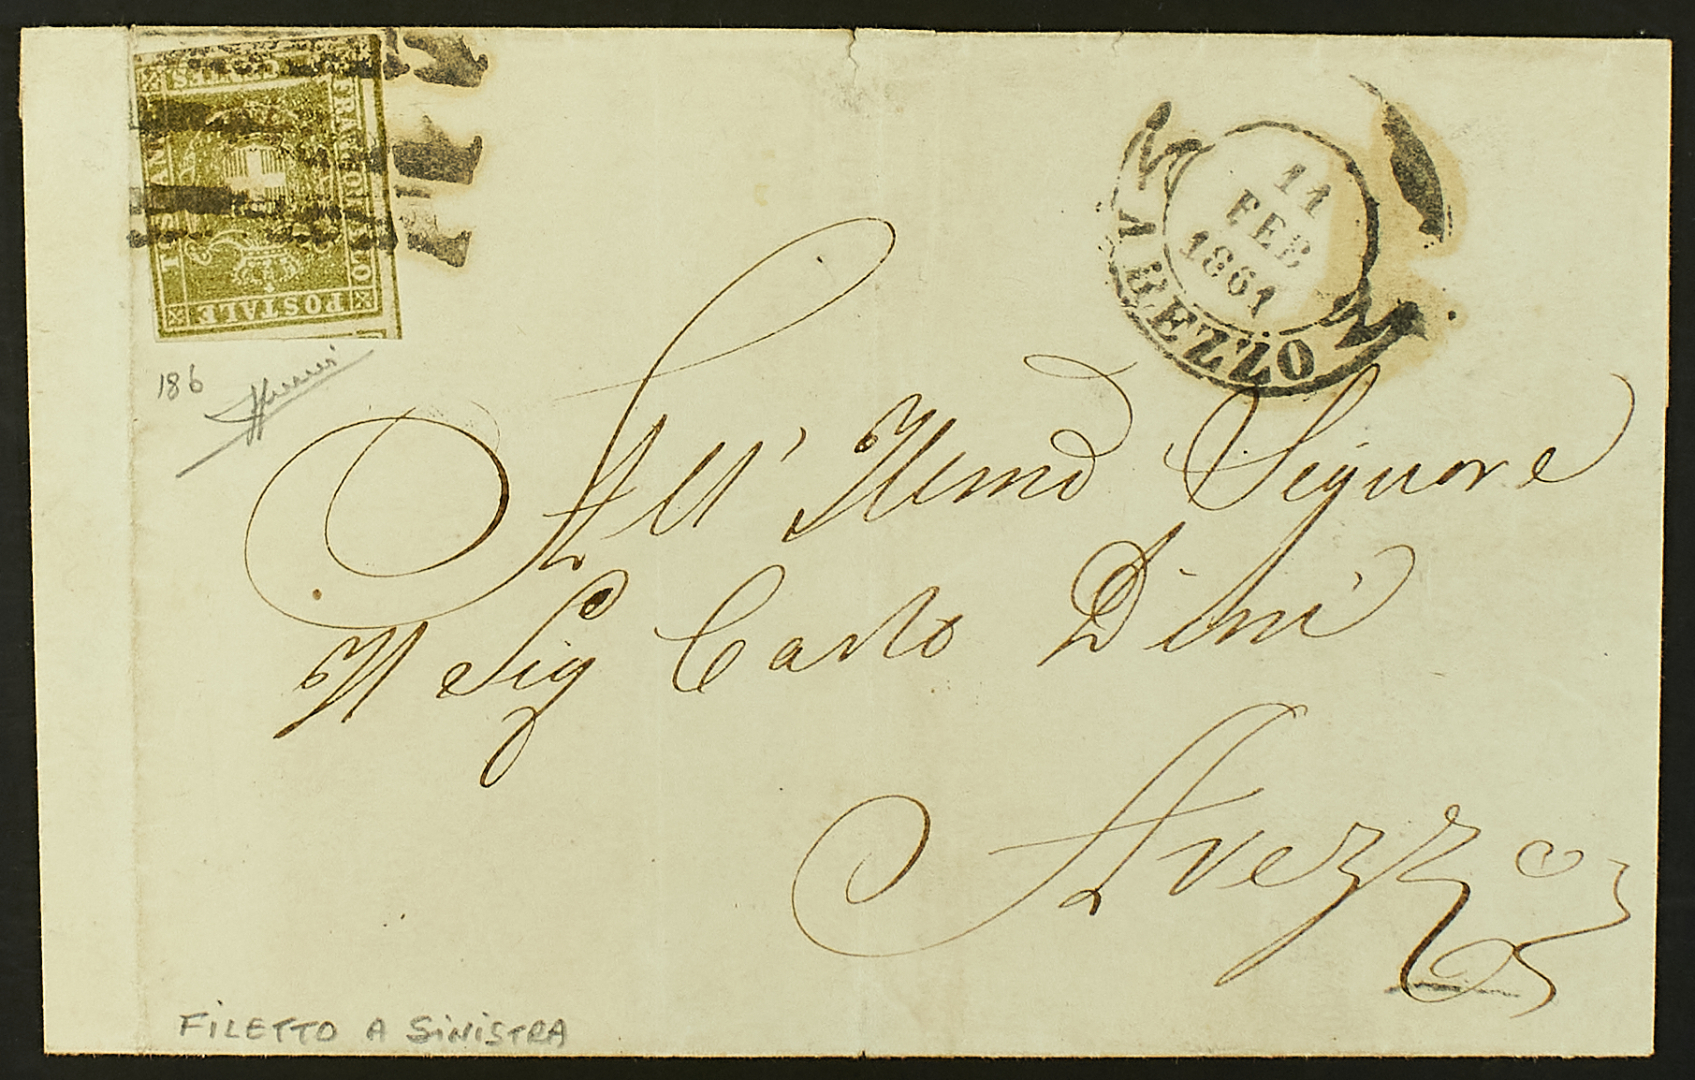 CENTES
FRANCOBOLLO
TOSCANO
POSTALE
11
FEB
1861
AREZZO
186
All' Illmo Signore
Il Sig Carlo Dini
Arezzo
FILETTO A SINISTRA